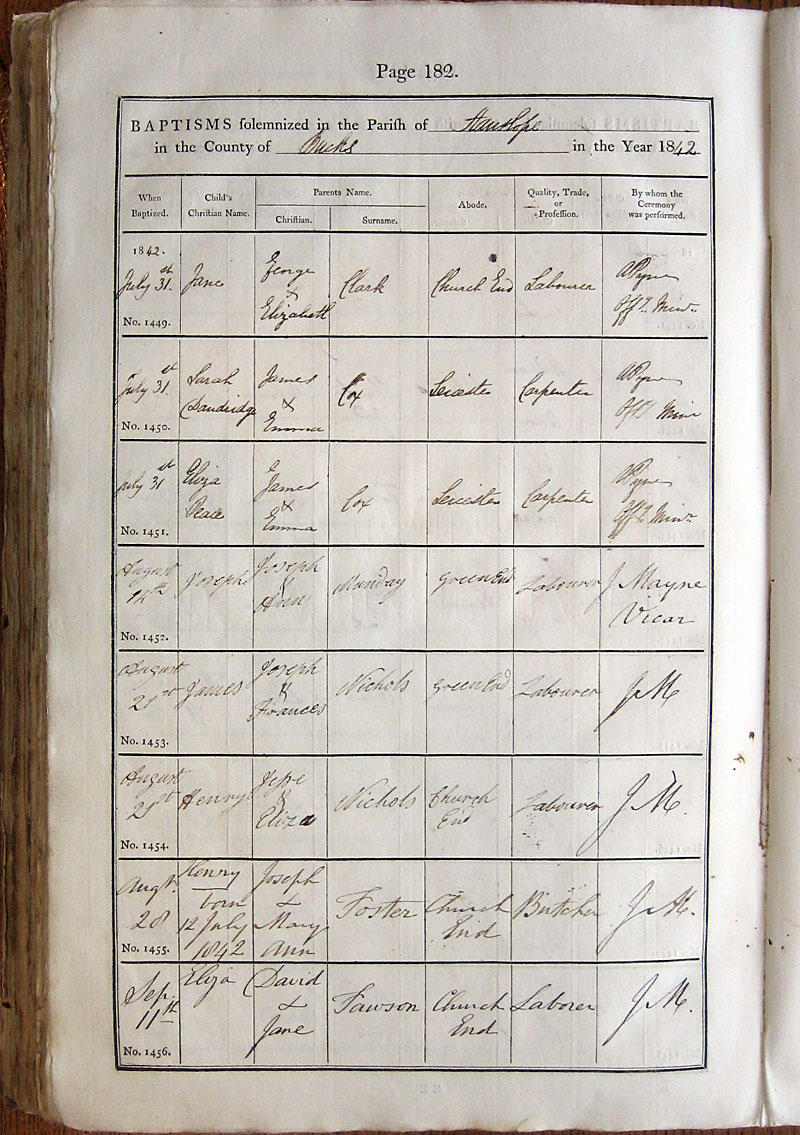 Page 182.
BAPTISMS solemnized in the Parish of Hanslope
in the County of Bucks in the Year 1842
When Baptized. Child's Christian Name. Parents Name. Christian. Surname. Abode. Quality, Trade, or Profession. By whom the Ceremony was performed.
1842.
July 31st. Jane George & Elizabeth Clark Church End Labourer A Pyne Offg. Minr.
No. 1449.
July 31st Sarah Dandridge James & Emma Cox Leicester Carpenter A Pyne Offg Minr
No. 1450.
July 31st Eliza Peace James & Emma Cox Leicester Carpenter A Pyne Offg Minr
No. 1451.
August 14th Joseph Joseph & Ann Munday Green End Labourer J Mayne Vicar
No. 1452.
August 21st James Joseph & Frances Nichols Green End Labourer J M
No. 1453.
August 21st Henry Jesse & Eliza Nichols Church End Labourer J M.
No. 1454.
Augt. 28 Henry born 12 July 1842 Joseph & Mary Ann Foster Church End Butcher J M.
No. 1455.
Sep. 11th Eliza David & Jane Church End Laborer J M.
No. 1456.